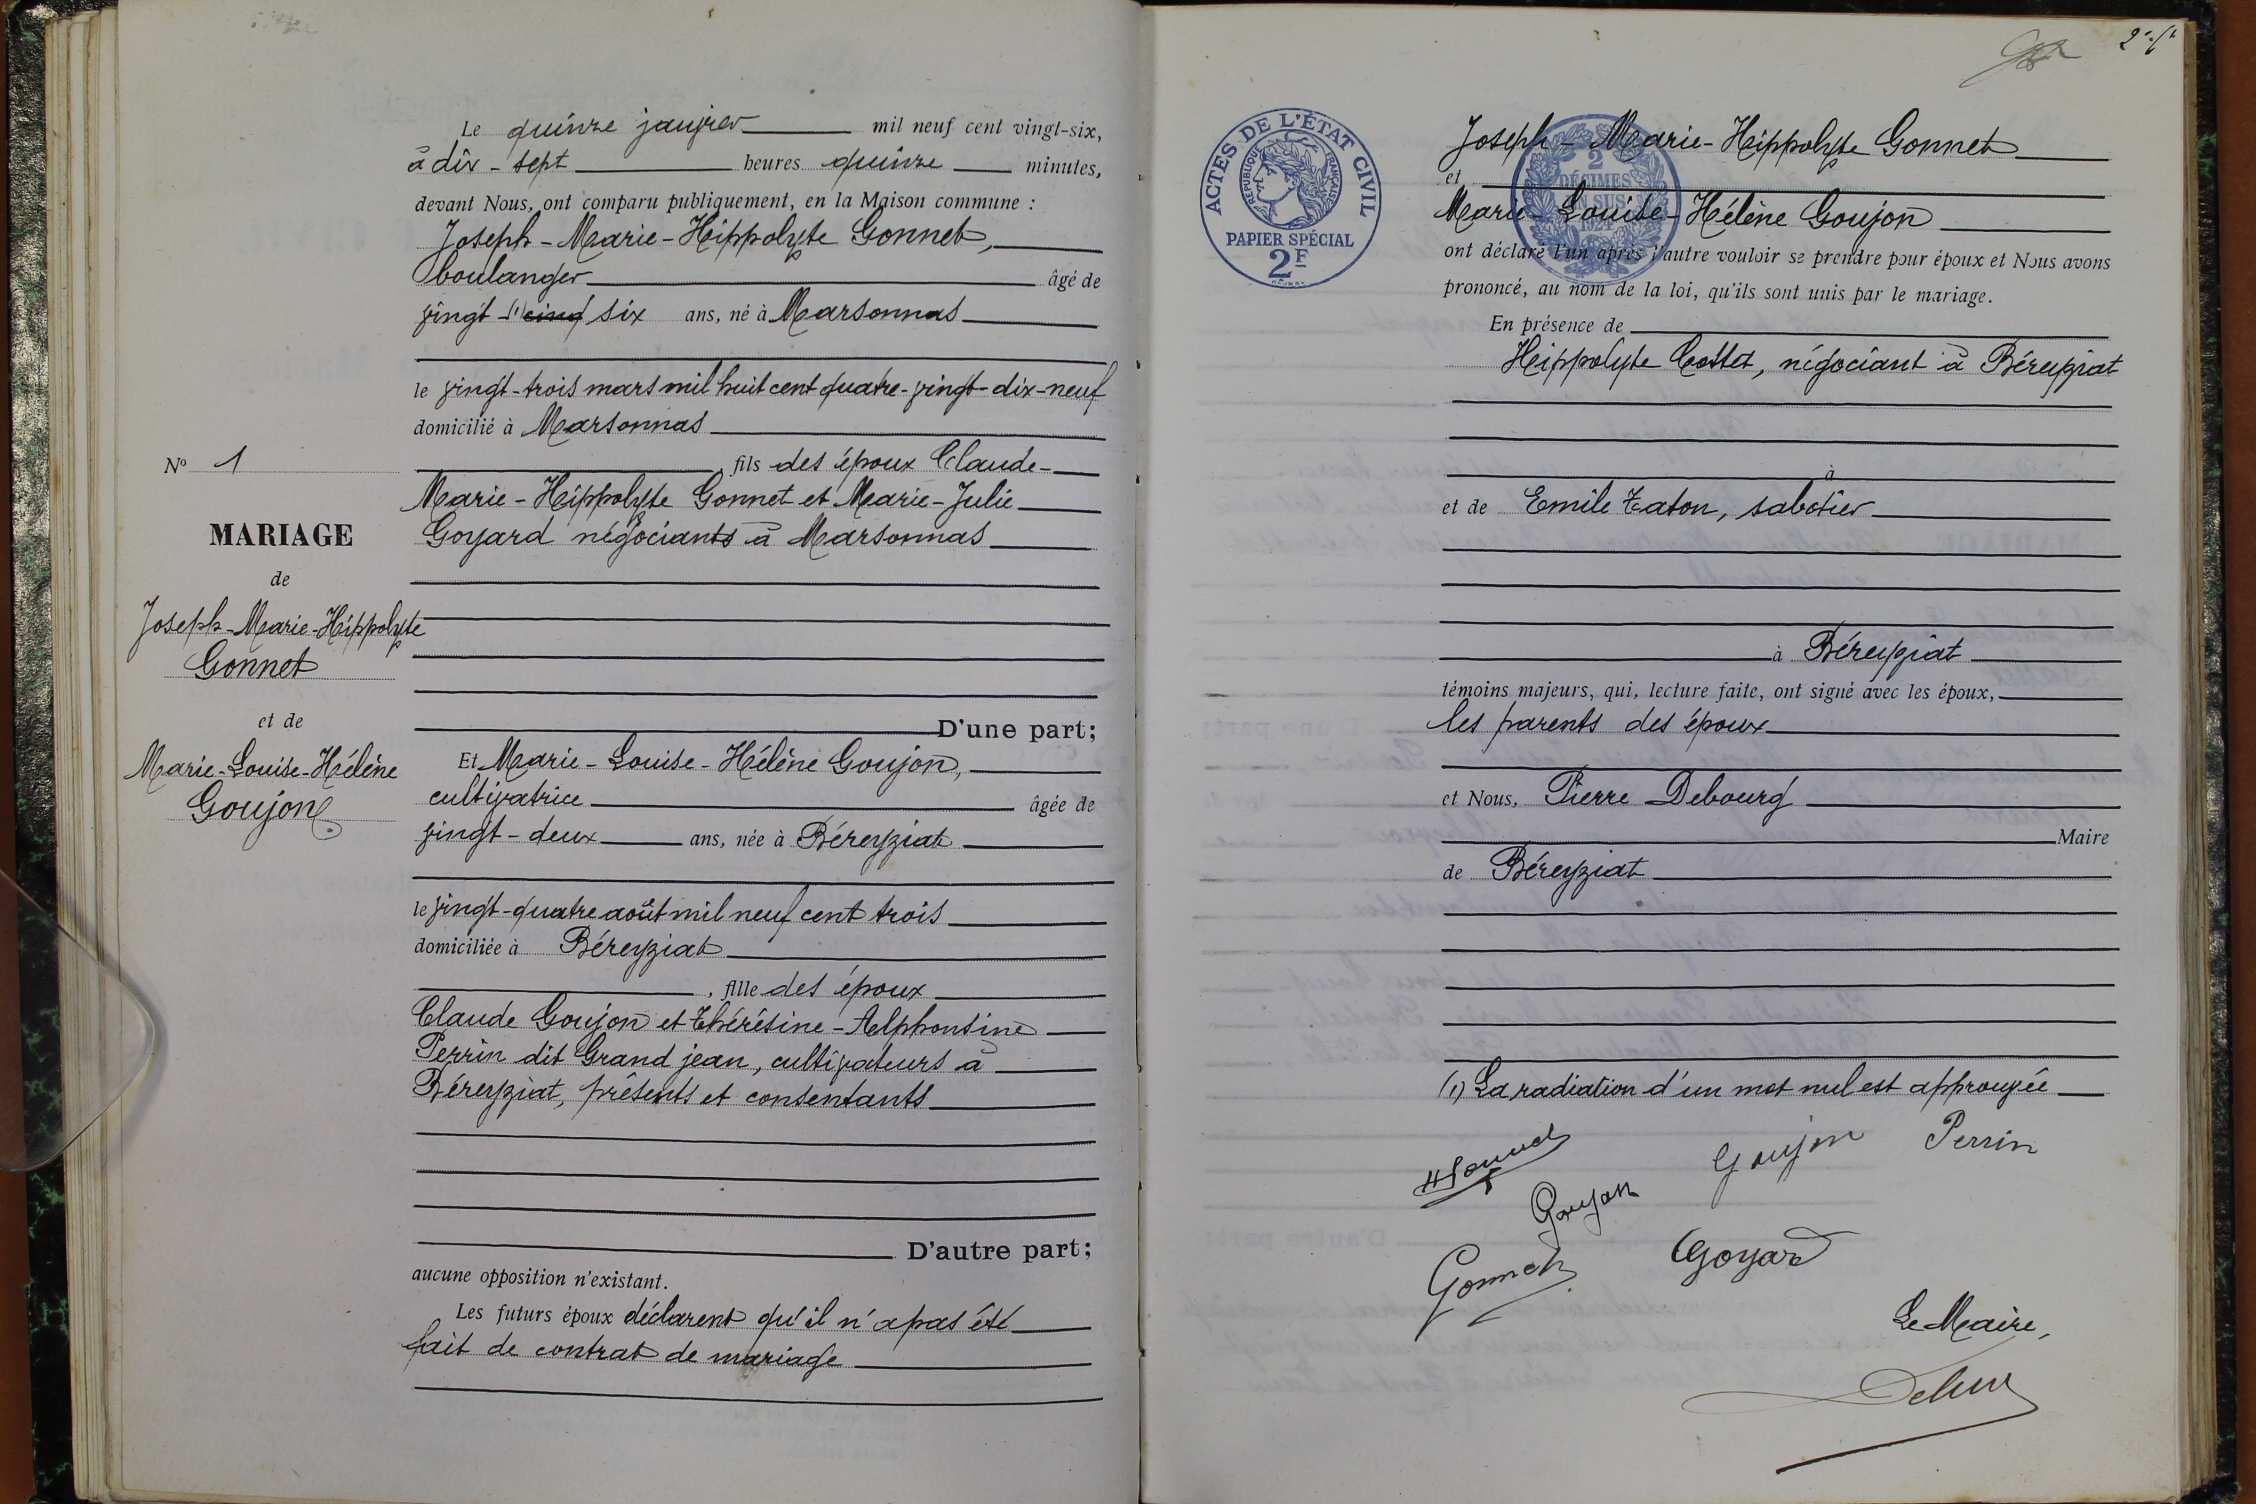 Le quinze janvier mil neuf cent vingt-six,
à dix-sept heures quinze minutes,
devant Nous, ont comparu publiquement, en la Maison commune :
Joseph-Marie-Hippolyte Gonnet,
boulanger âgé de
vingt-(1) cinq six ans, né à Marsonnas
le vingt-trois mars mil huit cent quatre-vingt-dix-neuf
domicilié à Marsonnas
fils des époux Claude-
Marie-Hippolyte Gonnet et Marie-Julie
Goyard négociants à Marsonnas
D'une part;
Et Marie-Louise-Hélène Goujon,
cultivatrice âgée de
vingt-deux ans, née à Béreyziat
le vingt-quatre août mil neuf cent trois
domiciliée à Béreyziat
, fille des époux
Claude Goujon et Thérésine-Alphonsine
Perrin dit Grand jean, cultivateurs à
Béreyziat, présents et consentants
D'autre part;
aucune opposition n'existant.
Les futurs époux déclarent qu'il n'a pas été
fait de contrat de mariage
N° 1
MARIAGE
de
Joseph-Marie-Hippolyte
Gonnet
et de
Marie-Louise-Hélène
Goujon
ACTES DE L'ÉTAT CIVIL
RÉPUBLIQUE FRANÇAISE
PAPIER SPÉCIAL
2F
2
DÉCIMES
EN SUS
1924
Joseph-Marie-Hippolyte Gonnet
et
Marie-Louise-Hélène Goujon
ont déclaré l'un après l'autre vouloir se prendre pour époux et Nous avons
prononcé, au nom de la loi, qu'ils sont unis par le mariage.
En présence de
Hippolyte Cottet, négociant à Béreyziat
à
et de Emile Taton, sabotier
à Béreyziat
témoins majeurs, qui, lecture faite, ont signé avec les époux,
les parents des époux
et Nous, Pierre Debourg
Maire
de Béreyziat
(1) La radiation d'un mot nul est approuvée
H Gonnet
Goujon
Perrin
Goujon
Gonnet
Goyard
Le Maire,